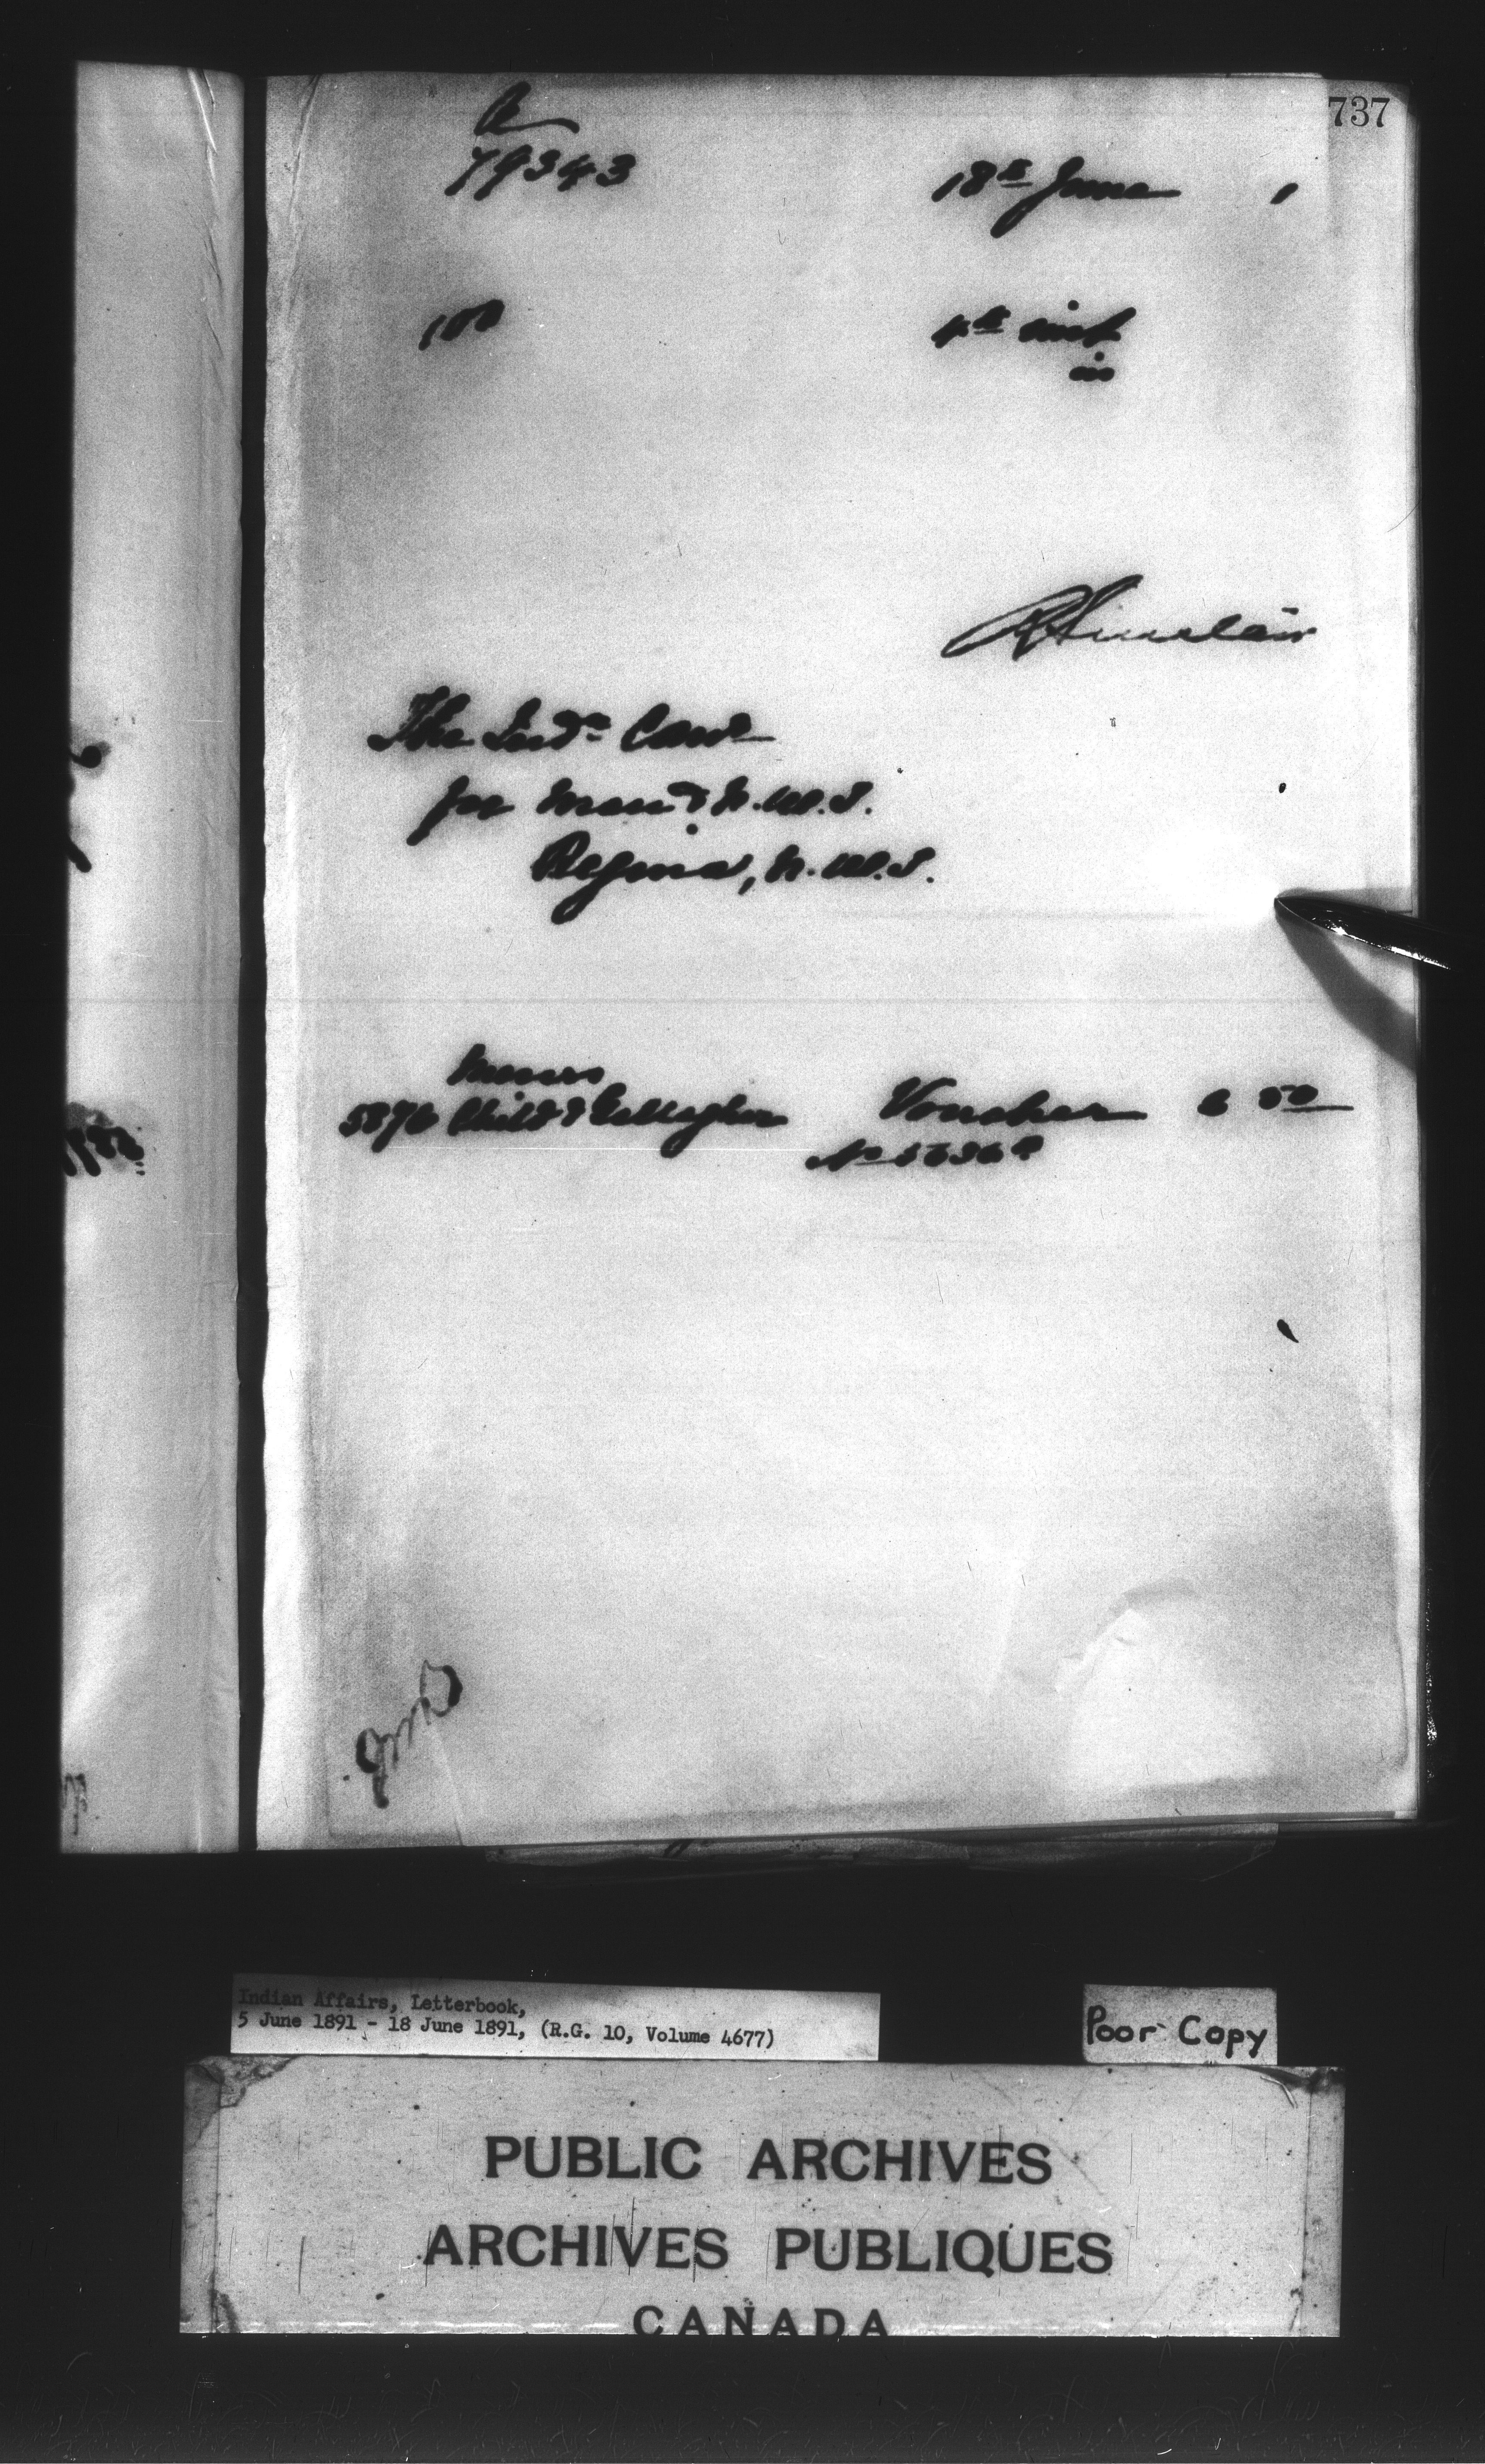 737
A
79343
18th June
100
4th inst
in
R Sinclair
The Indn Comr
for Man & N.W.T.
Regina, N.W.T.
Messrs
Child & Gallagher Voucher 6 50
No
Indian Affairs, Letterbook,
5 June 1891 - 18 June 1891, (R.G. 10, Volume 4677)
Poor Copy
PUBLIC ARCHIVES
ARCHIVES PUBLIQUES
CANADA